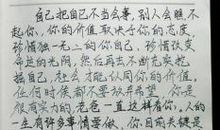 自己把自己不当会事,别人会瞧不
起你,你的价值取决于你的态度
珍惜独一无二的你自己,珍惜改变
命运的光阴,然后再去不断充实挖
掘自己,社会才能认同你的价值,
任何时候都不要放弃希望,你是
很有实力的,老爸一直这样看你,人的
一生有许多事情要做,你目前关键是